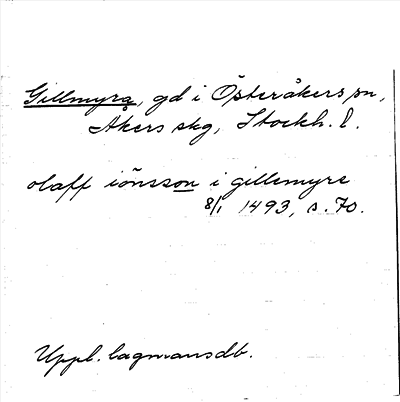 Gillmyra, gd i Österåkers sn,
Åkers skg, Stockh. l.
olaff iönsson i gillemyre
8/1 1493, s. 70.
Uppl. lagmansdb.